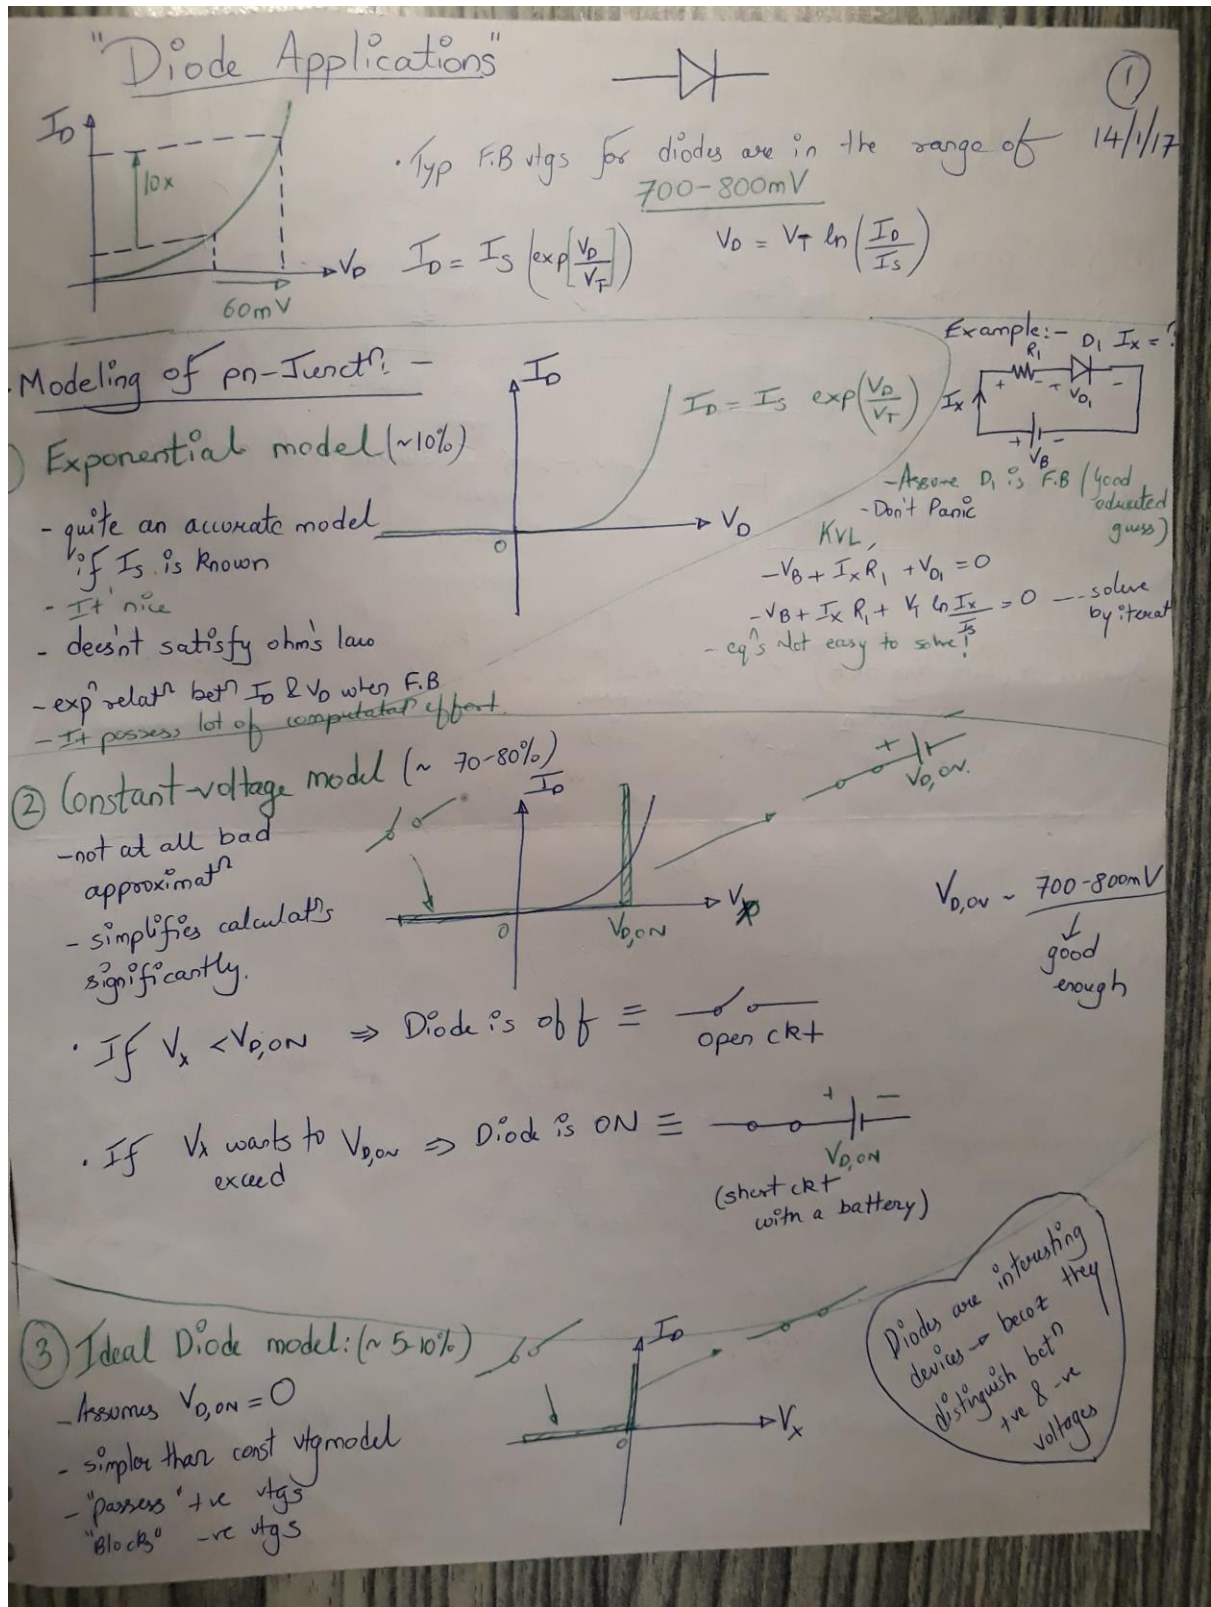 "Diode Applications"
1
14/1/17
I_D
10x
V_D
60mV
· Typ F.B vtgs for diodes are in the range of
700-800mV
I_D = I_S (exp[V_D/V_T])
V_D = V_T ln(I_D/I_S)
Modeling of pn-Junctⁿ: -
1) Exponential model (~10%)
- quite an accurate model
if I_S is known
- It' nice
- deesn't satisfy ohm's law
- expⁿ relatⁿ betⁿ I_D & V_D when F.B
- It possess lot of computatatⁿ effort.
I_D
I_D = I_S exp(V_D/V_T)
V_D
0
Example:-
R_1 D_1 I_x = ?
I_x
+ - + V_D1 -
+ -
V_B
- Assume D_1 is F.B (Good
educated
guess)
- Don't Panic
KVL,
-V_B + I_x R_1 + V_D1 = 0
-V_B + I_x R_1 + V_T ln I_x/I_S = 0 --- solve
by iterat
- eqⁿs Not easy to solve!
② Constant-voltage model (~ 70-80%)
- not at all bad
approximatⁿ
- simplifies calculatⁿs
significantly.
I_D
V_x
0
V_D,ON
+
V_D,ON.
V_D,ON ~ 700-800mV
↓
good
enough
· If V_x < V_D,ON ⇒ Diode is off ≡
open ckt
· If V_x wants to V_D,ON ⇒ Diode is ON ≡
exceed
+ -
V_D,ON
(short ckt
with a battery)
③ Ideal Diode model: (~ 5-10%)
- Assumes V_D,ON = 0
- simpler than const vtg model
- "passess" +ve vtgs
"Blocks" -ve vtgs
I_D
V_x
0
Diodes are interesting
devices → becoz they
distinguish betⁿ
+ve & -ve
voltages